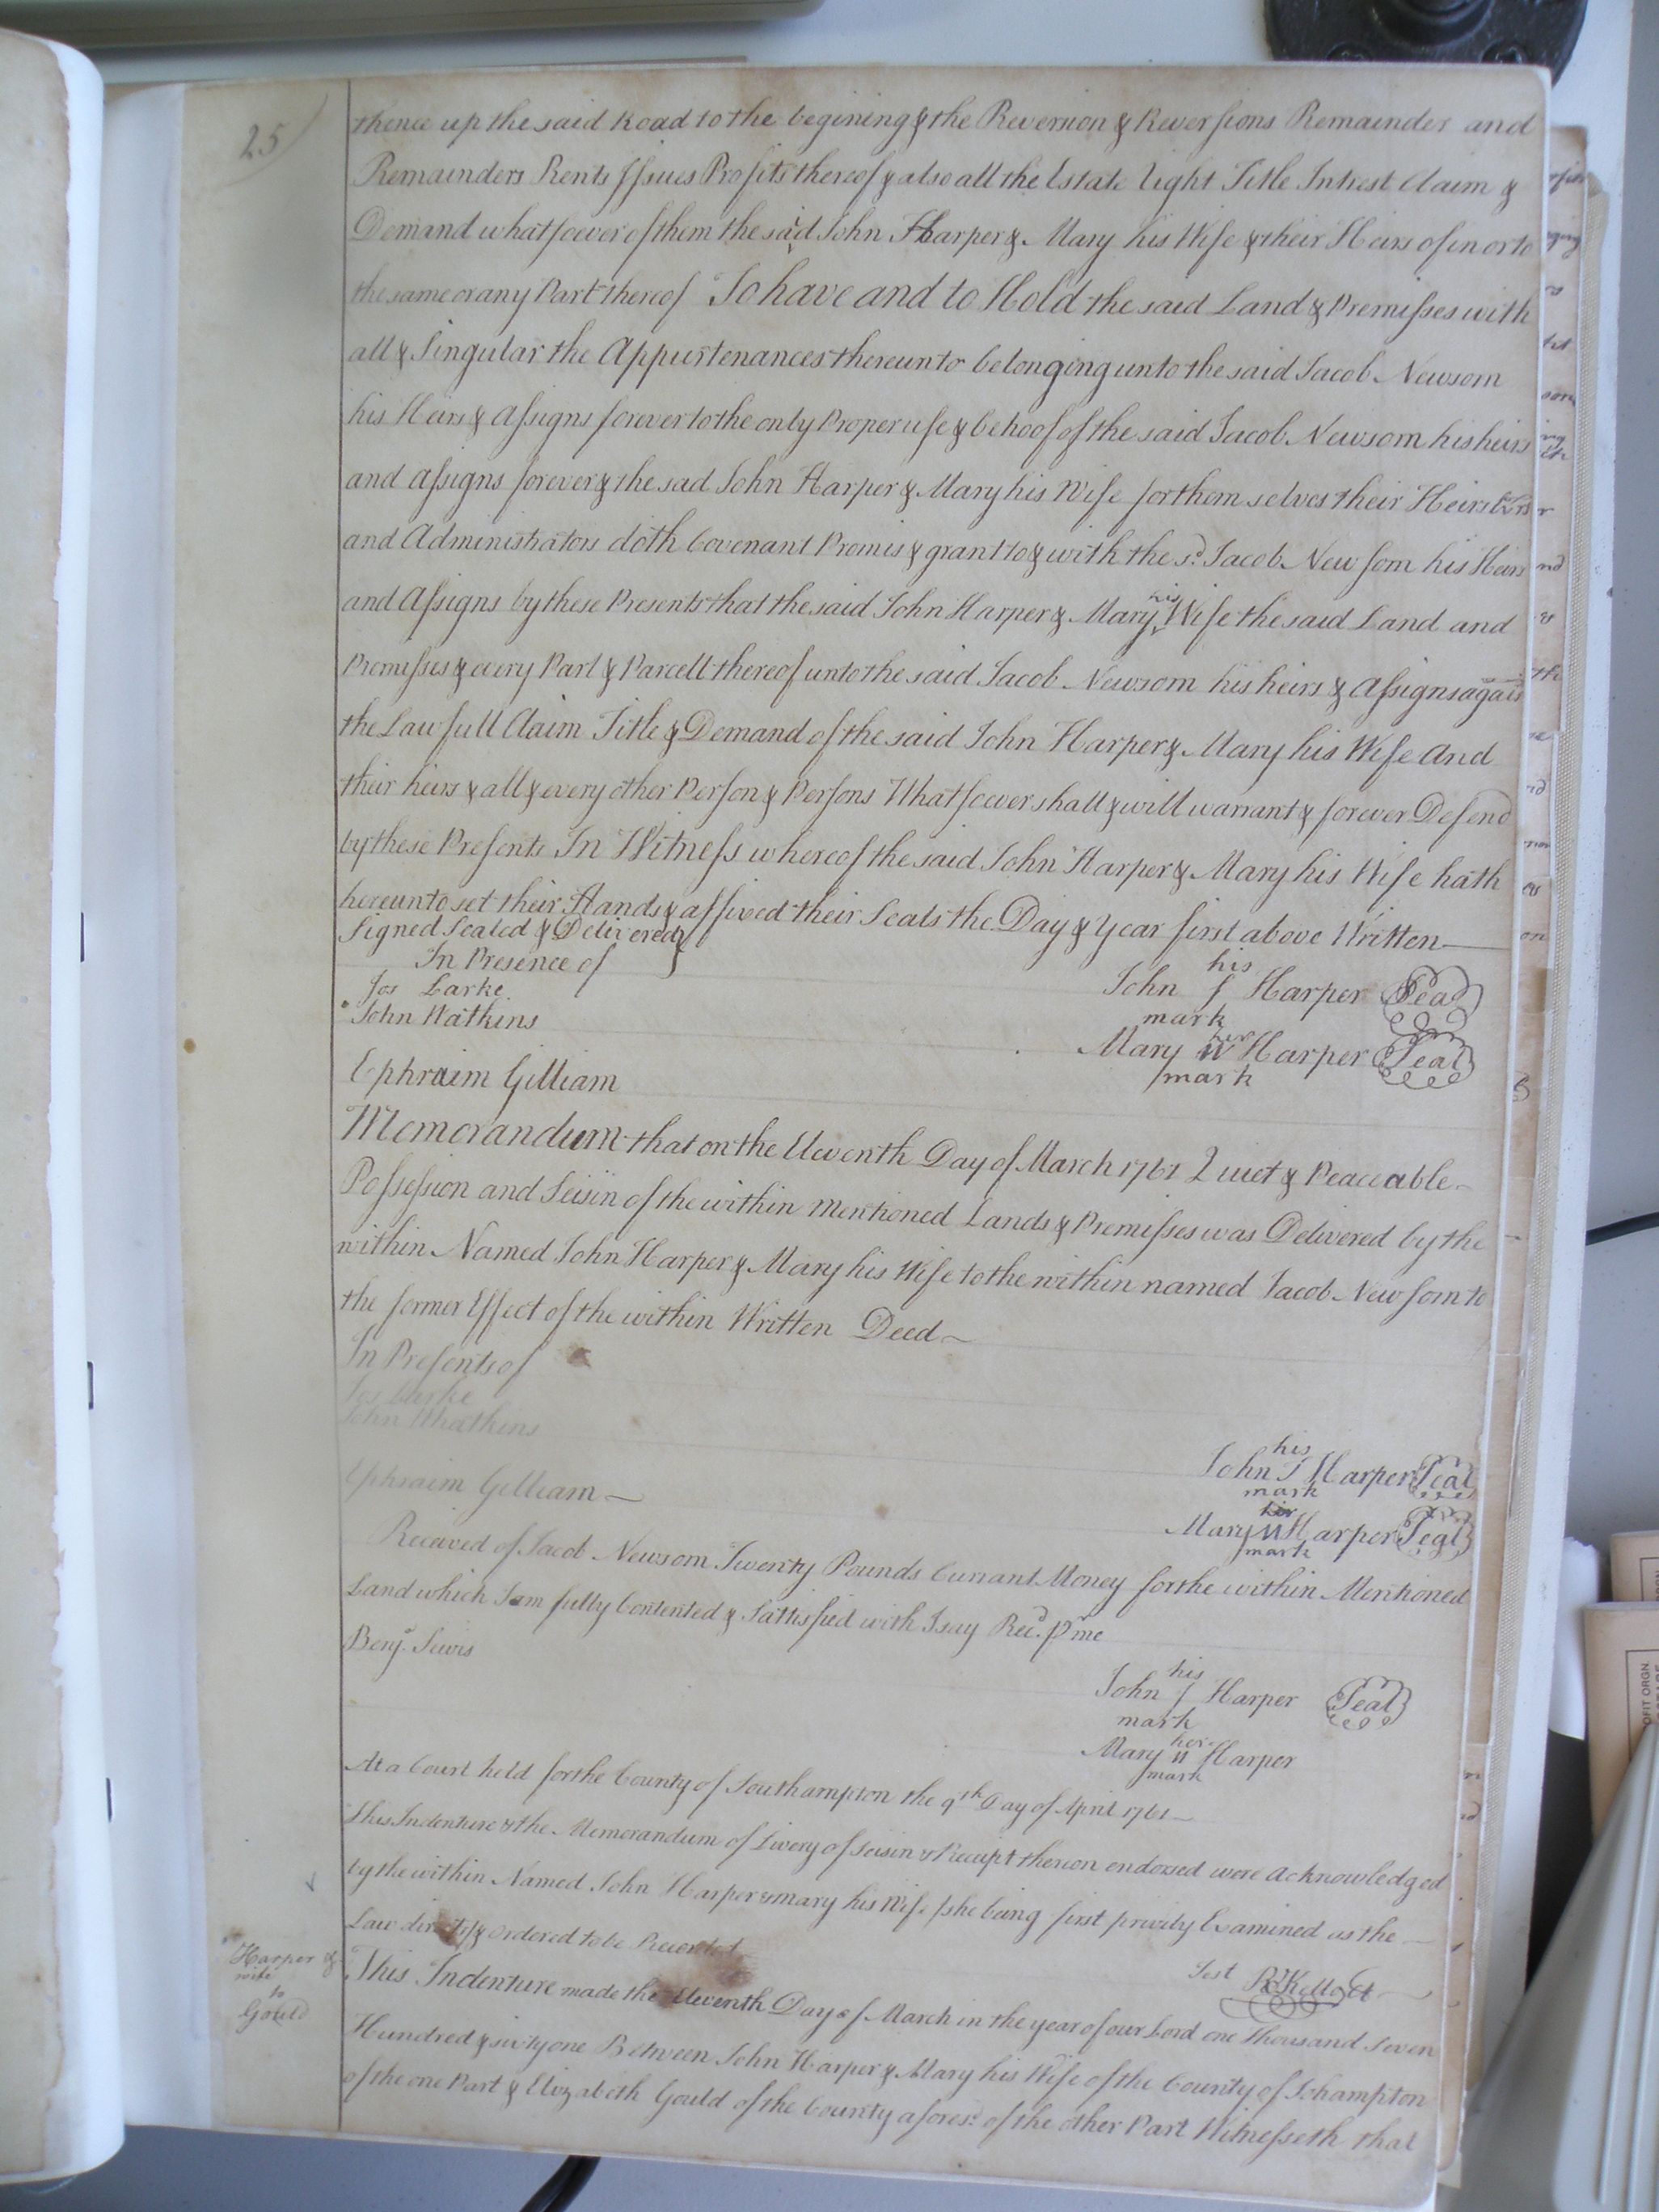 25
thence up the said Road to the begining & the Reversion & Reversions Remainder and
Remainders Rents Issues Profits thereof & also all the Estate Right Title Intrest Claim &
Demand whatsoever of them the said John Harper & Mary his Wife & their Heirs of in or to
the same or any Part thereof To have and to Hold the said Land & Premisses with
all & Singular the Appurtenances thereunto belonging unto the said Jacob Newsom
his Heirs & Assigns forever to the only Proper use & behoof of the said Jacob Newsom his heirs
and Assigns forever & the sad John Harper & Mary his Wife for them selves their Heirs Exrs
and Administrators doth Covenant Promis & grant to & with the sd. Jacob Newsom his Heirs
and Assigns by these Presents that the said John Harper & Mary his Wife the said Land and
Premisses & every Part & Parcell thereof unto the said Jacob Newsom his heirs & Assigns against
the Lawfull Claim Title & Demand of the said John Harper & Mary his Wife And
their heirs & all & every other Person & Persons Whatsoever shall & will warrant & forever Defend
by these Presents In Witness whereof the said John Harper & Mary his Wife hath
hereunto set their Hands & affixed their Seals the Day & Year first above Written
Signed Sealed & Delivered
In Presence of
Jos Larke
John Watkins
Ephraim Gilliam
his
John J Harper Seal
mark
her
Mary W Harper Seal
mark
Memorandum that on the Eleventh Day of March 1761 Quiet & Peaceable
Possession and Seisin of the within Mentioned Lands & Premisses was Delivered by the
within Named John Harper & Mary his Wife to the within named Jacob Newsom to
the former Effect of the within Written Deed
In Presents of
Jos Larke
John Whatkins
Ephraim Gilliam
his
John J Harper Seal
mark
her
Mary W Harper Seal
mark
Received of Jacob Newsom Twenty Pounds Currant Money for the within Mentioned
Land which I am fully Contented & Sattisfied with I say Recd. p me
Benja. Lewis
his
John J Harper Seal
mark
her
Mary W Harper
mark
At a Court held for the County of Southampton the 9th Day of April 1761
This Indenture & the Memorandum of Livery of Seisin & Receipt thereon endorsed were acknowledged
by the within Named John Harper & Mary his Wife she being first privily Examined as the
Law directs & ordered to be Recorded
Test R Kello Ct
Harper &
wife
to
Gould
This Indenture made the Eleventh Day of March in the year of our Lord one thousand seven
Hundred & sixty one Between John Harper & Mary his Wife of the County of Sohampton
of the one Part & Elizabeth Gould of the County afores: of the other Part Witnesseth that